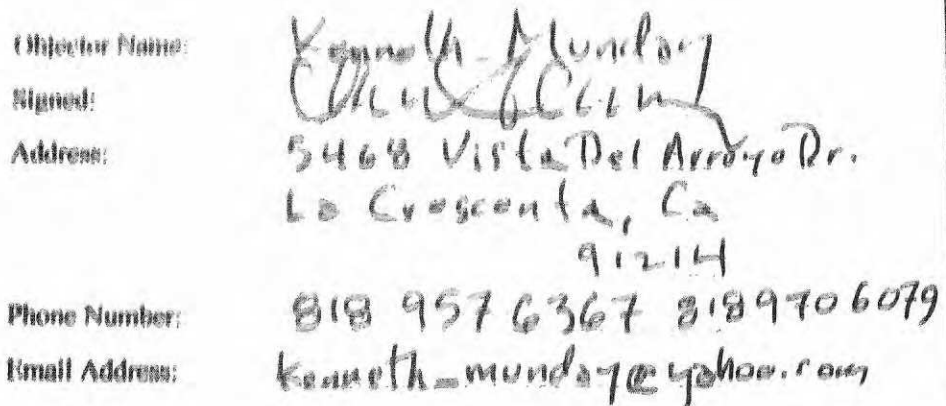 Objector Name: Kenneth Munday
Signed:
Address: 5468 Vista Del Arroyo Dr.
La Crescenta, Ca
91214
Phone Number: 818 957 6367 818 970 6079
Email Address: kenneth_munday@yahoo.com